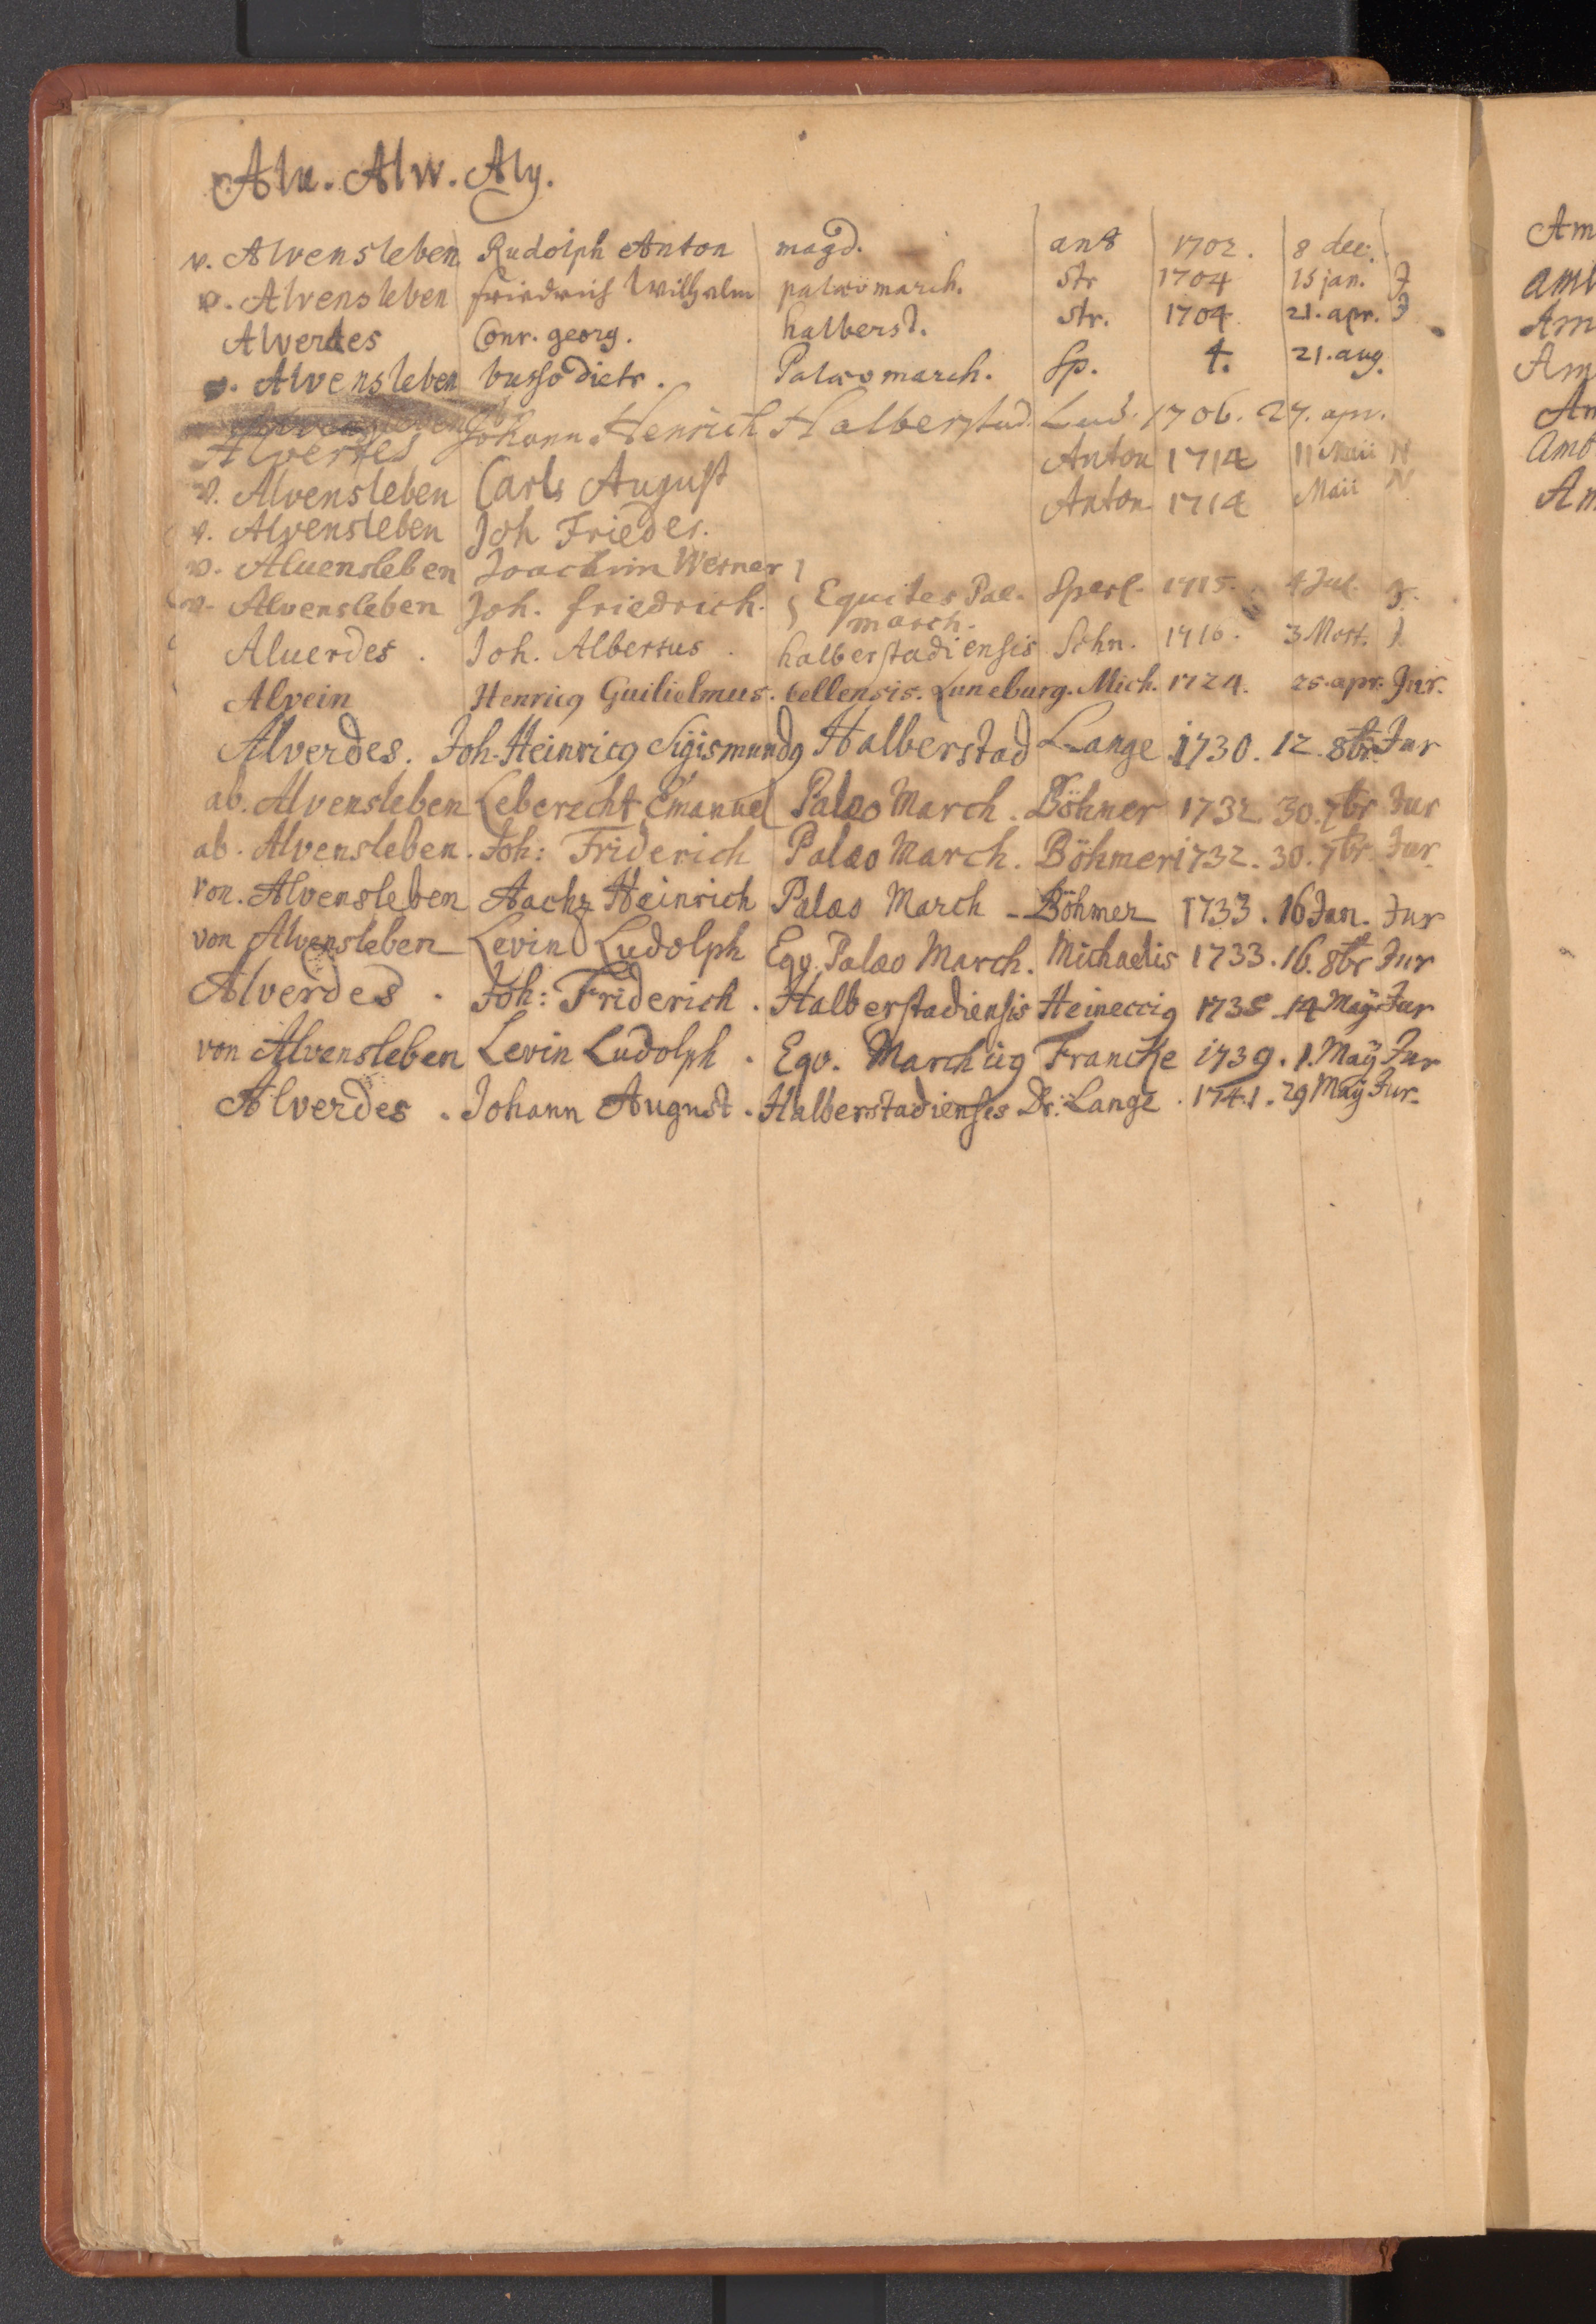 Alu. Alw. Aly.
v. Alvensleben Rudolph Anton magd. ant 1702. 8 dec.
v. Alvensleben friedrich Wilhelm palæomarch. Str 1704 15 jan. J
Alverdes Conr. georg. halberst. Str. 1704 21. apr. J
v. Alvensleben busso dietr. Palæomarch. Sp. 4. 21. aug.
Alverdes Johann Henrich Halberstad. Lud. 1706. 27. apr.
v. Alvensleben Carls August Anton 1714 11 Maii N
v. Alvensleben Joh Frieder. Anton 1714 Maii N
v. Aluensleben Joachim Werner
v. Alvensleben Joh. friedrich. Equites Pal. march. Sperl. 1715. 4 Jul. J.
Aluerdes. Joh. Albertus. halberstadiensis Schn. 1716. 3 Mart. J.
Alvein Henricg Guilielmus. Cellensis. Luneburg. Mich. 1724. 25. apr. Jur.
Alverdes. Joh. Heinricg Sigismundg Halberstad Lange 1730. 12. 8br. Jur
ab. Alvensleben Leberecht Emanuel Palæo March. Böhmer 1732 30. 7br Jur
ab. Alvensleben. Joh: Friderich Palæo March. Böhmer 1732. 30. 7br. Jur
von. Alvensleben Aachz Heinrich Palæo March - Böhmer 1733. 16 Jan. Jur
von Alvensleben Levin Ludolph Eqv. Palæo March. Michaelis 1733. 16. 8br Jur
Alverdes. Joh: Friderich. Halberstadiensis Heineccig 1735. 14 Maÿ Jur
von Alvensleben Levin Ludolph. Eqv. Marchicg Francke 1739. 1. Maÿ Jur
Alverdes. Johann August. Halberstadiensis Dr. Lange. 1741. 29 Maÿ Jur.
Am
Am
Am
Am